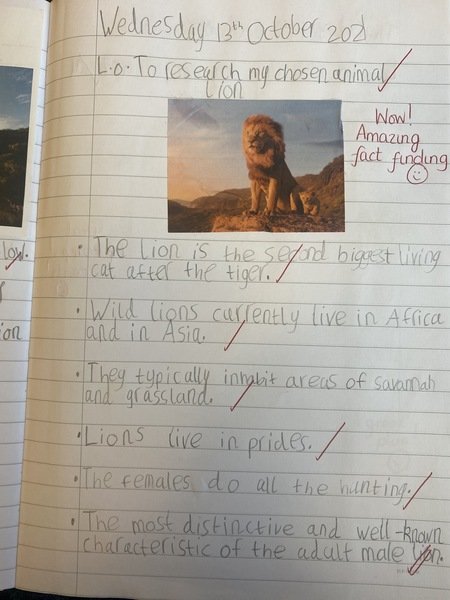 Wednesday 13th October 2021
L.o. To research my chosen animal
lion
Wow!
Amazing
fact finding
low.
ion
• The lion is the second biggest living
cat after the tiger.
• Wild lions currently live in Africa
and in Asia.
• They typically inhabit areas of savannah
and grassland.
• Lions live in prides.
• The females do all the hunting.
• The most distinctive and well-known
characteristic of the adult male lion.